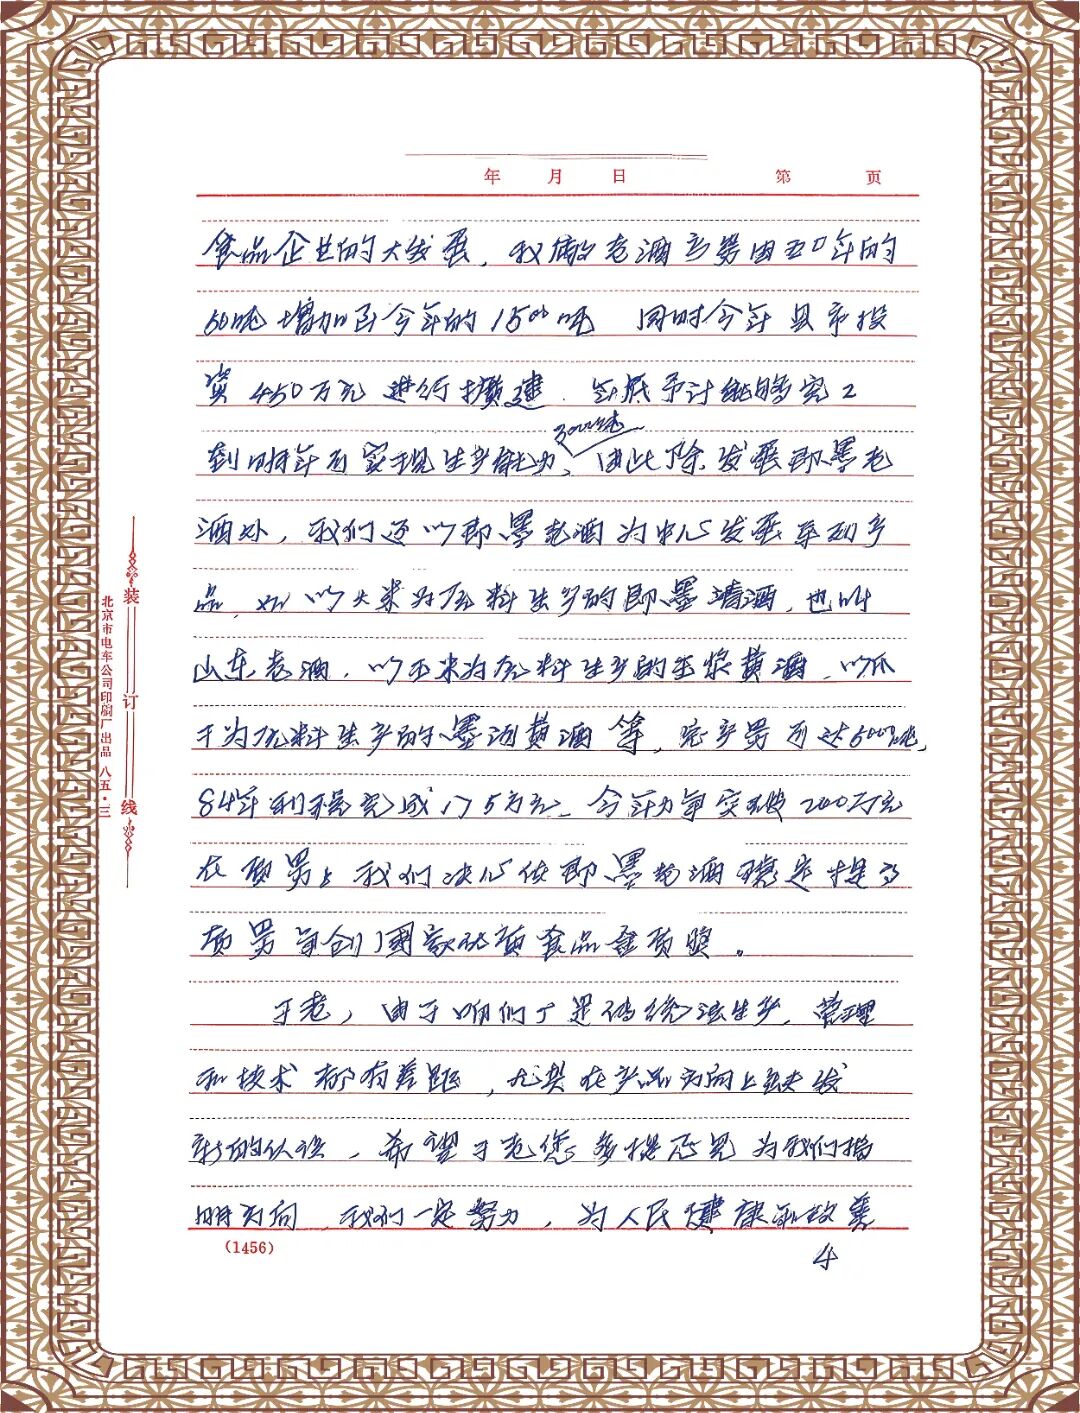 年 月 日 第 页
食品企业的大发展，我厂老酒产量由五〇年的
60吨增加到今年的1500吨 同时今年县市投
资450万元进行扩建．年底予计能踏完工
到明年可实现生产能力3000吨、由此除发展即墨老
酒外，我们还以即墨老酒为中心发展系列产
品，如以大米为原料生产的即墨清酒，也叫
山东老酒．以玉米为原料生产的玉浆黄酒．以瓜
干为原料生产的墨河黄酒等，总产量可达6000吨，
84年利税完成175万元．今年力争突破200万元
在质量上我们决心使即墨老酒稳定提高
质量争创国家优质食品金质奖。
于老，由于咱们厂是传统法生产、管理
和技术都有差距，尤其在产品方向上缺发
新的认识，希望于老您多提意见为我们指
明方向．我们一定努力，为人民健康和改善
4
(1456)
装订线
北京市电车公司印刷厂出品 八五·三